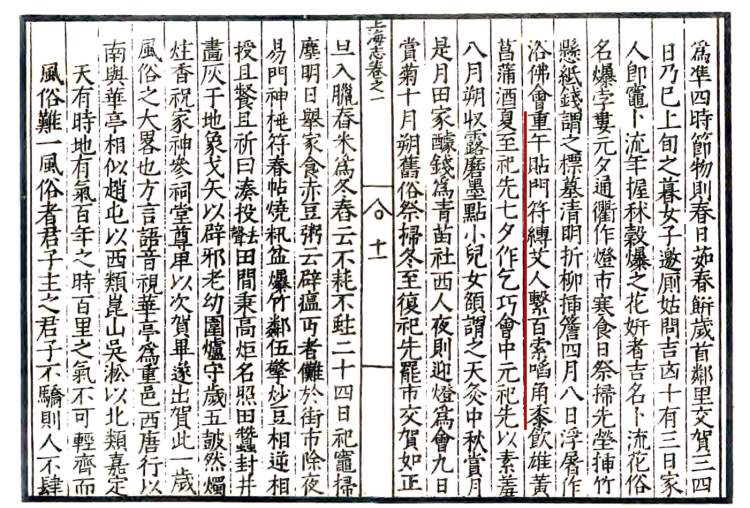 爲準四時節物則春日茹春餅歲首鄰里交賀三四
日乃已上旬之暮女子邀厠姑問吉凶十有三日家
人卽竈卜流年握秫穀爆之花姸者吉名卜流花俗
名爆孛婁元夕通衢作燈市寒食日祭掃先塋揷竹
懸紙錢謂之標墓清明折柳揷簷四月八日浮屠作
浴佛會重午貼門符縛艾人繫百索啗角黍飲雄黃
菖蒲酒夏至祀先七夕作乞巧會中元祀先以素羞
八月朔収露磨墨點小兒女額謂之天灸中秋賞月
是月田家醵錢爲青苗社西人夜則迎燈爲會九日
賞菊十月朔舊俗祭掃冬至復祀先罷市交賀如正
上海志卷之一
十一
旦入臘舂米爲冬舂云不耗不蛀二十四日祀竈掃
塵明日舉家食赤豆粥云辟瘟丐者儺於街市除夜
易門神桃符春帖燒籸盆爆竹鄰伍擎炒豆相遞相
授且餐且祈曰湊投田間秉高炬名照田蠶封井
畫灰于地象戈矢以辟邪老幼圍爐守歲五皷然燭
炷香祝家神參祠堂尊卑以次賀畢遂出賀此一歲
風俗之大畧也方言語音視華亭爲重邑西唐行以
南與華亭相似趙屯以西類崑山吳淞以北類嘉定
天有時地有氣百年之時百里之氣不可輕齊而
風俗難一風俗者君子主之君子不驕則人不肆